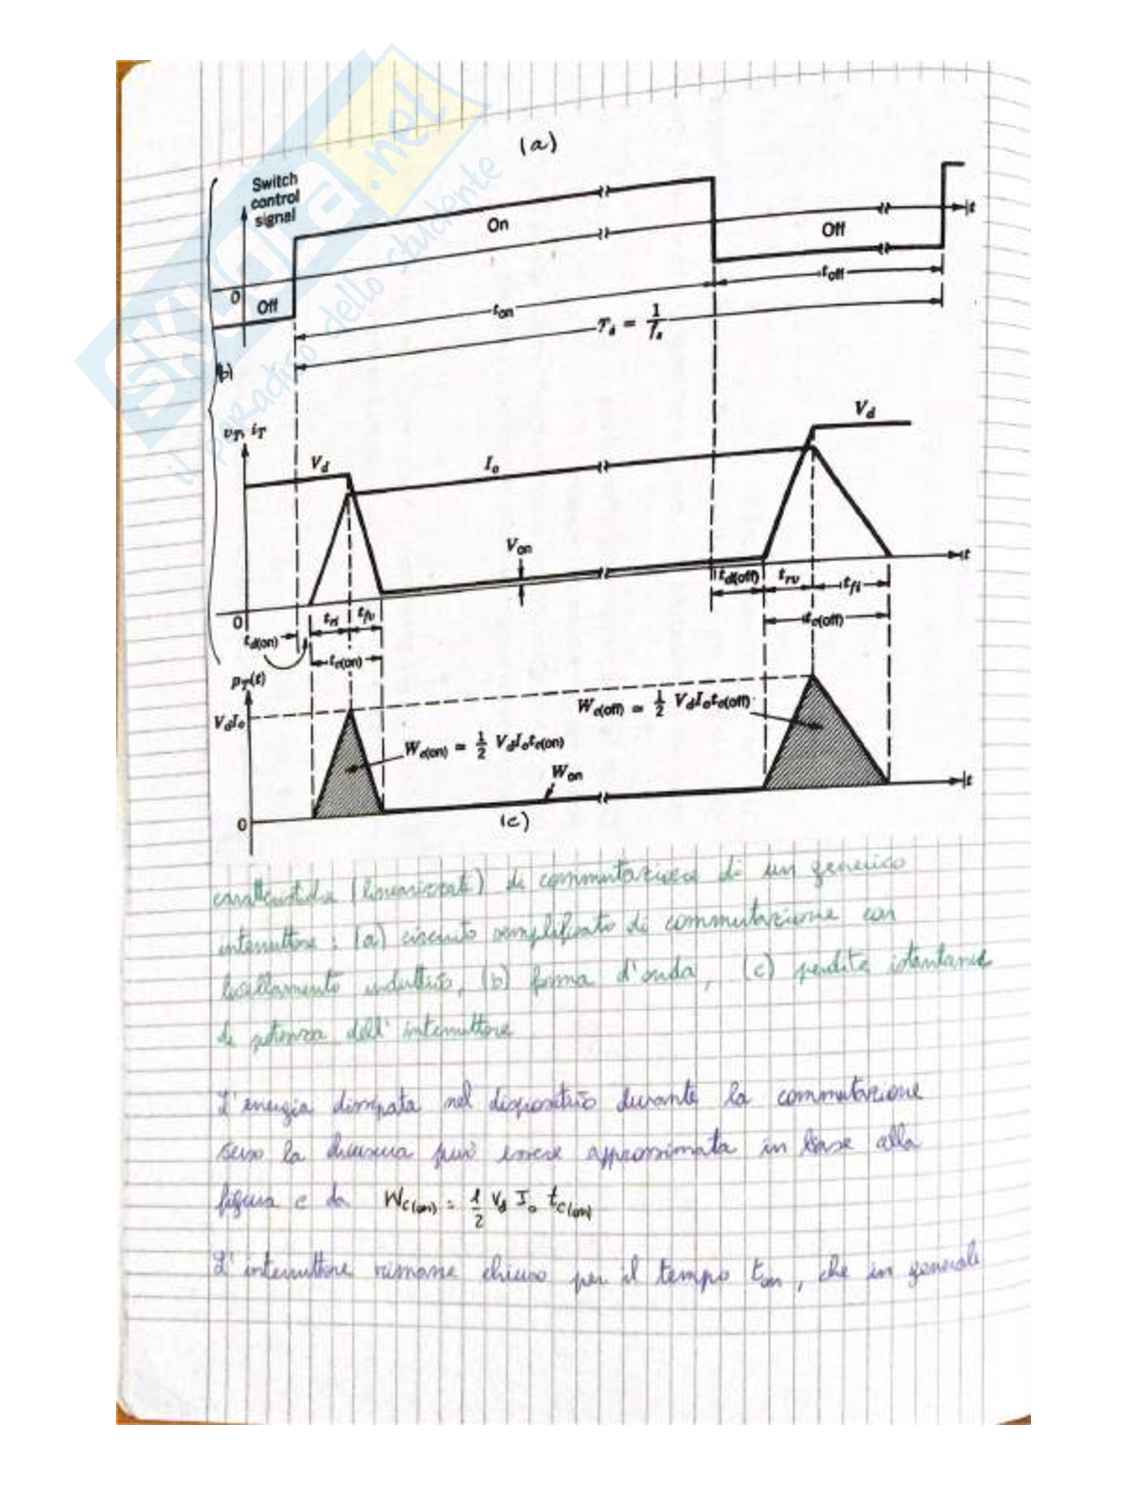 SKUOLA.net
il paradiso dello studente
(a)
Switch
control
signal
On
Off
t
0
Off
t_off
t_on
T_s = 1/f_s
(b)
v_T, i_T
V_d
I_o
V_d
V_on
t
0
t_d(on)
t_ri
t_fv
t_d(off)
t_rv
t_fi
t_c(on)
t_c(off)
p_T(t)
V_dI_o
W_c(on) ≃ 1/2 V_dI_ot_c(on)
W_c(off) ≃ 1/2 V_dI_ot_c(off)
W_on
t
0
(c)
caratteristiche (linearizzate) di commutazione di un generico
interruttore: (a) circuito semplificato di commutazione con
livellamento induttivo, (b) forma d'onda, (c) perdite istantanee
di potenza dell'interruttore
L'energia dissipata nel dispositivo durante la commutazione
verso la chiusura può essere approssimata in base alla
figura c da W_c(on) = 1/2 V_d I_o t_c(on)
L'interruttore rimane chiuso per il tempo t_on, che in generale